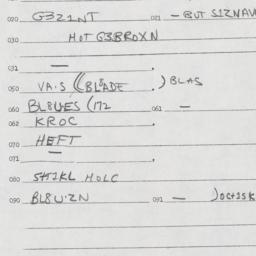 020 G3Z1NT 021 - BUT S1ZNAW
030 HOT G3BROXN
032 —
050 VA·S ((BLADE .) BLAS
060 BL8UES (172 061 —
062 KROC
070 HEFT
071 —
080 SH1KL HOLC
090 BL8U·ZN 091 —